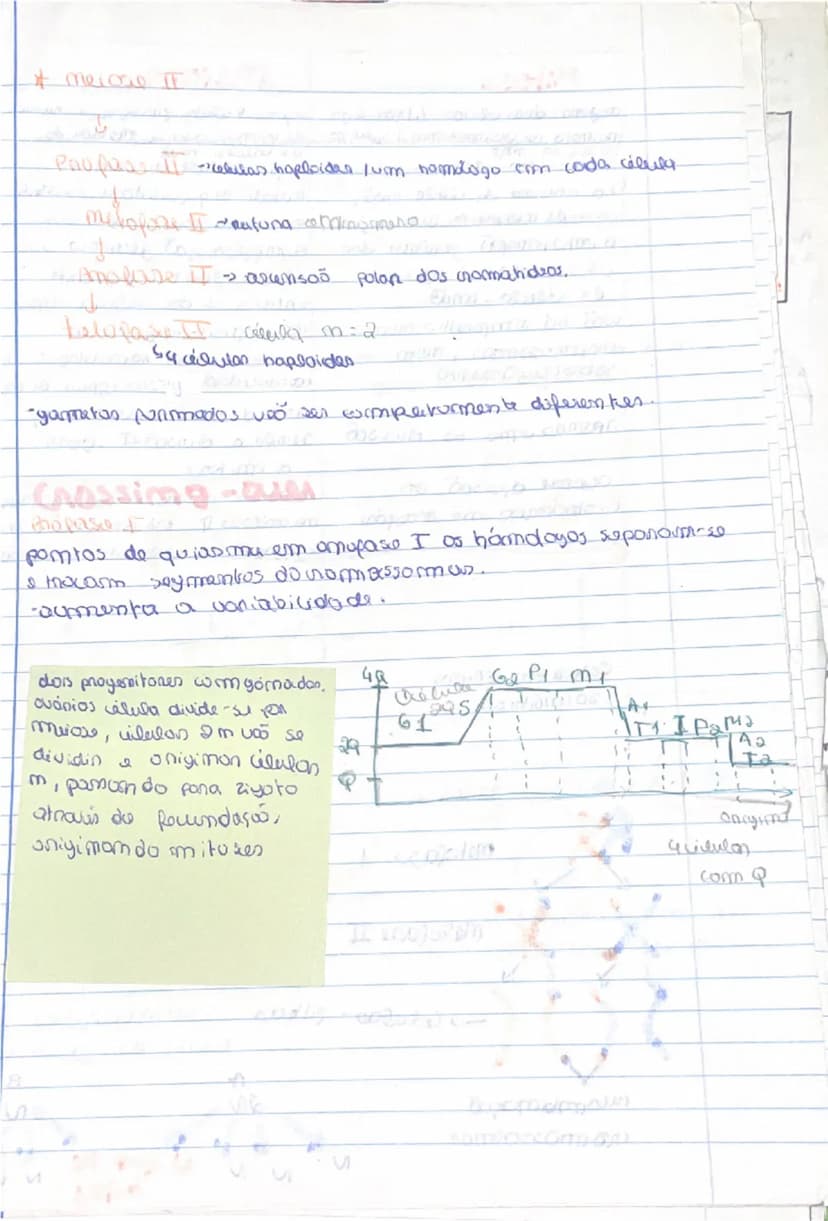 * Meiose II
Profase II → celulas haploidas / um homólogo em cada célula
Metafase II → rutura centrómero
Anafase II → ascensão polar dos cromatideos.
Telofase II célula n=2
↳ 4 células haploides
- gametas formados vão ser completamente diferentes.
Crossing-over
Profase I
pontos de quiasma em anafase I os homólogos separam-se
e trocam segmentos do cromossomas.
- aumenta a variabilidade.
dois progenitores com gónadas,
ovários célula divide-se por
meiose, células 2n vão se
dividir e originar células
n, passando para zigoto
através de fecundação,
originando mitoses
4Q
G2 P1 M1
célula
G1
S
A1
2Q
T1 I P2 M2
A2
T2
Q
origina
4 células
com Q